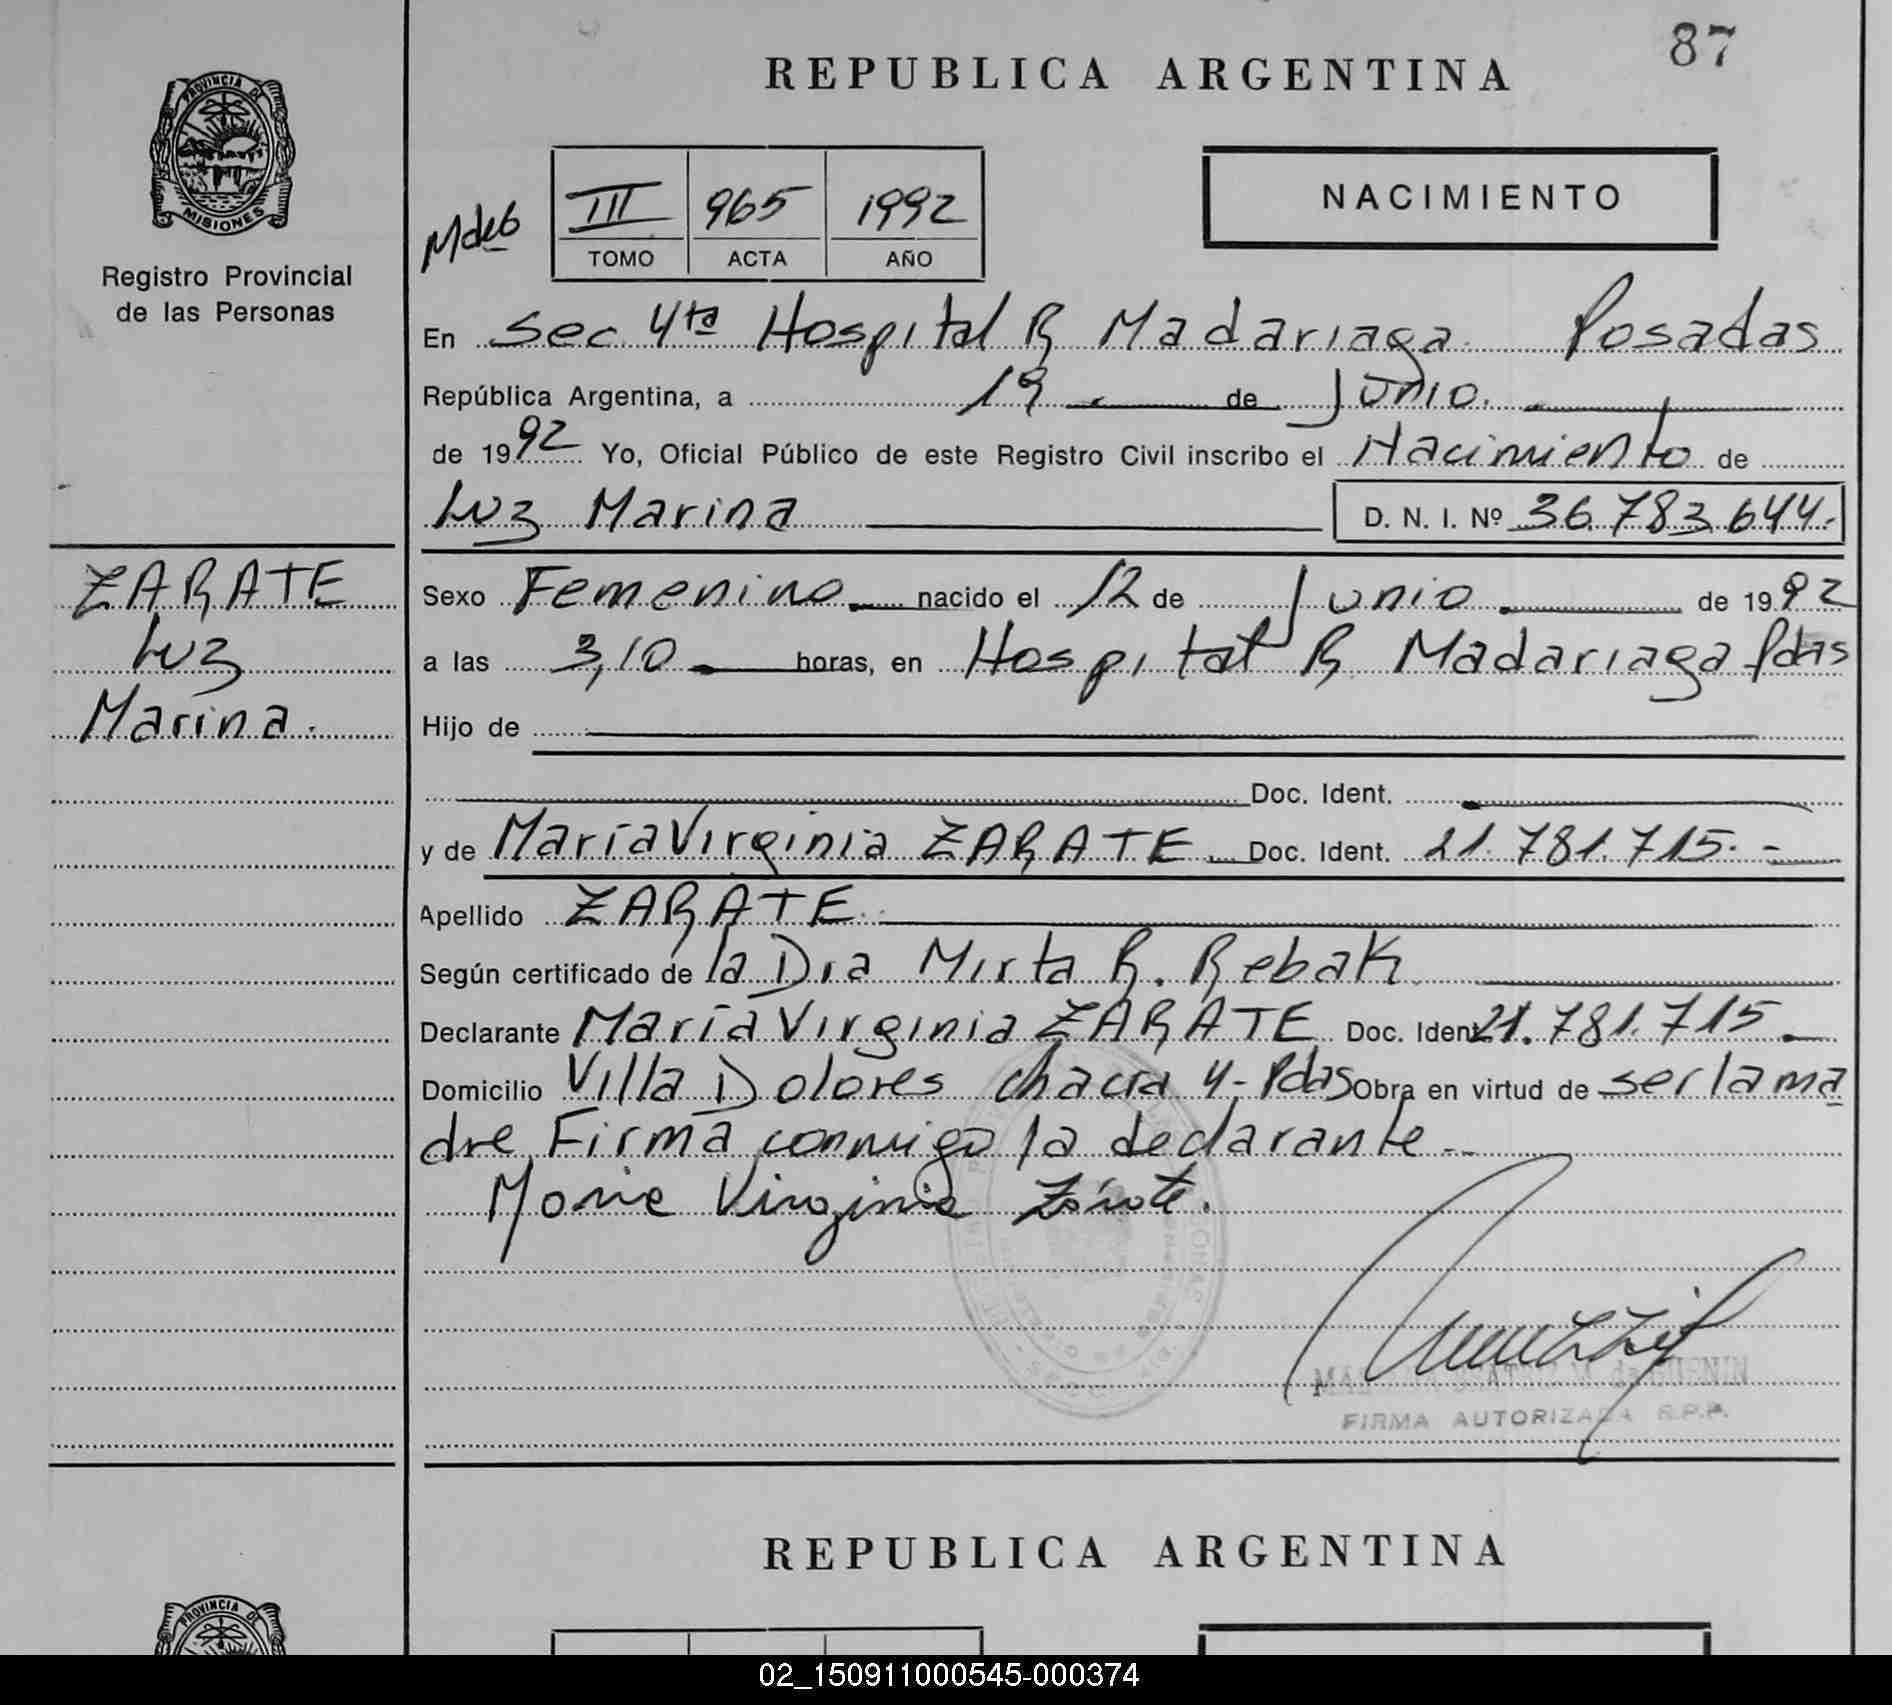 87
REPUBLICA ARGENTINA
PROVINCIA DE
MISIONES
Registro Provincial
de las Personas
III 965 1992
TOMO ACTA AÑO
NACIMIENTO
En Sec 4ta Hospital R Madariaga Posadas
República Argentina, a 19 de Junio.
de 1992 Yo, Oficial Público de este Registro Civil inscribo el Nacimiento de
Luz Marina D. N. I. Nº 36.783.644.-
ZARATE
Luz
Marina.
Sexo Femenino nacido el 12 de Junio de 1992
a las 3,10 horas, en Hospital R Madariaga Pdas
Hijo de
Doc. Ident.
y de María Virginia ZARATE Doc. Ident. 21.781.715.-
Apellido ZARATE
Según certificado de la Dra Mirta R. Rebak
Declarante María Virginia ZARATE Doc. Ident 21.781.715.-
Domicilio Villa Dolores chacra 4- Pdas Obra en virtud de ser la ma
dre Firma conmigo la declarante--
Maria Virginia Zárate.
FIRMA AUTORIZADA R.P.P.
REPUBLICA ARGENTINA
PROVINCIA DE
02_150911000545-000374